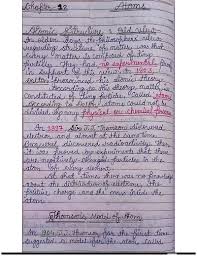 Chapter 12 Atoms
Atomic Structure
In olden days the philosophers' ideas
regarding structure of matter was that
every matter is composed of tiny
particles. They had no experimental proof
in support of this view. In 1803,
Dalton proposed his atomic theory.
According to this theory, matter is
constituted of tiny particles called atoms.
According to Dalton atoms could not be
divided by any physical or chemical process.
In 1897, Sir J.J. Thomson discovered
electron and almost at the same time
Becquerel discovered radioactivity. Then
it was found by experiments that there
are negatively charged particles in the
atom of any element.
At that time there was no theory
about the distribution of electrons, the
positive charge and the mass inside the
atom.
Thomson's Model of Atom
In 1904 J.J. Thomson for the first time
suggested a model for the atom called